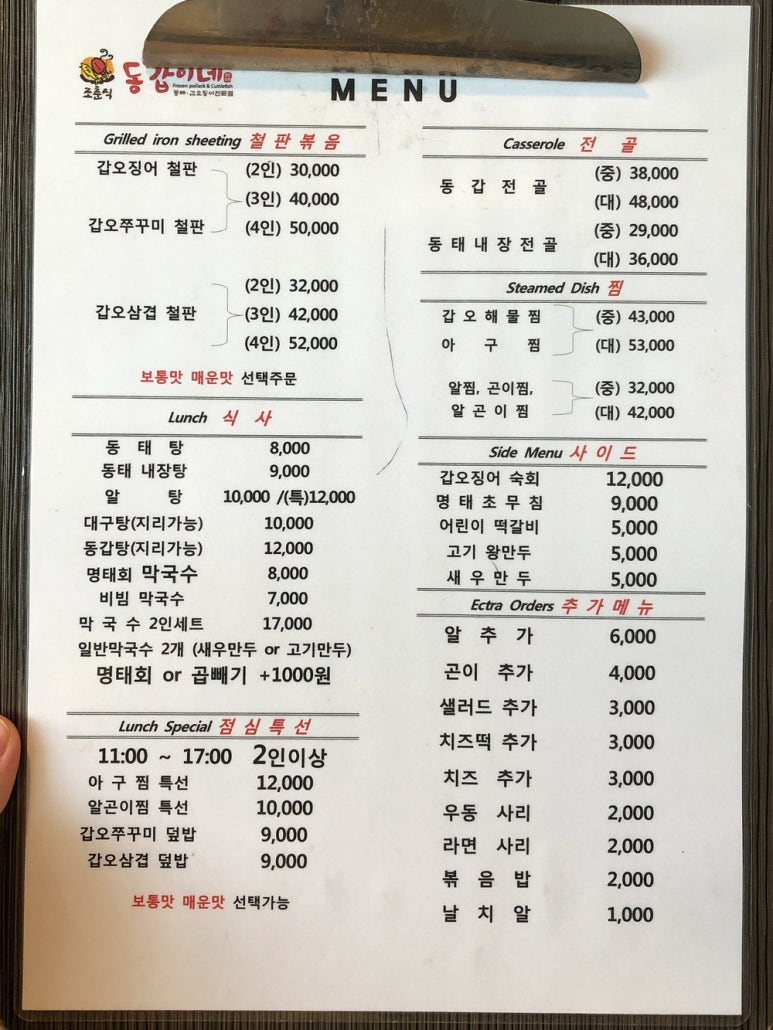 조춘식
동갑이네
Frozen pollack & Cuttlefish
MENU
Grilled iron sheeting 철판볶음
갑오징어 철판 (2인) 30,000
(3인) 40,000
갑오쭈꾸미 철판 (4인) 50,000
(2인) 32,000
갑오삼겹 철판 (3인) 42,000
(4인) 52,000
보통맛 매운맛 선택주문
Lunch 식 사
동 태 탕 8,000
동태 내장탕 9,000
알 탕 10,000 /(특)12,000
대구탕(지리가능) 10,000
동갑탕(지리가능) 12,000
명태회 막국수 8,000
비빔 막국수 7,000
막 국 수 2인세트 17,000
일반막국수 2개 (새우만두 or 고기만두)
명태회 or 곱빼기 +1000원
Lunch Special 점심특선
11:00 ~ 17:00 2인이상
아 구 찜 특선 12,000
알곤이찜 특선 10,000
갑오쭈꾸미 덮밥 9,000
갑오삼겹 덮밥 9,000
보통맛 매운맛 선택가능
Casserole 전 골
동 갑 전 골 (중) 38,000
(대) 48,000
동태내장전골 (중) 29,000
(대) 36,000
Steamed Dish 찜
갑오해물찜 (중) 43,000
아 구 찜 (대) 53,000
알찜, 곤이찜, (중) 32,000
알곤이찜 (대) 42,000
Side Menu 사이드
갑오징어 숙회 12,000
명태초무침 9,000
어린이 떡갈비 5,000
고기 왕만두 5,000
새우만두 5,000
Ectra Orders 추가메뉴
알 추 가 6,000
곤이 추가 4,000
샐러드 추가 3,000
치즈떡 추가 3,000
치즈 추가 3,000
우동 사리 2,000
라면 사리 2,000
볶 음 밥 2,000
날 치 알 1,000